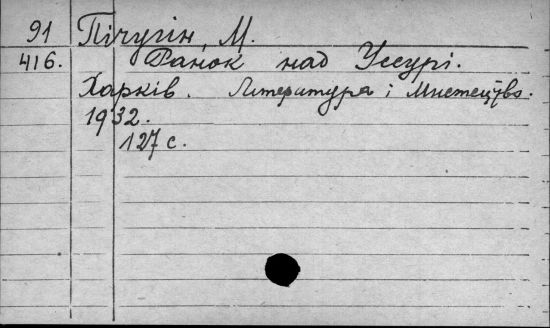 91 Пічугін, М.
416. Ранок над Уссурі.
Харків. Література і Мистецтво.
1932.
127 с.